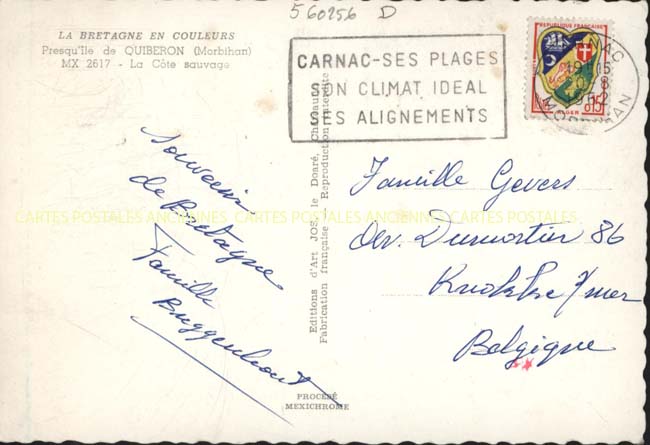 560256 D
LA BRETAGNE EN COULEURS
Presqu'île de QUIBERON (Morbihan)
MX 2617 - La Côte sauvage
CARNAC-SES PLAGES
SON CLIMAT IDEAL
SES ALIGNEMENTS
REPUBLIQUE FRANÇAISE
0,15
ALGER
CARNAC
MORBIHAN
Souvenir
de Bretagne
Famille
Buggenhout
Editions d'Art JOS, le Doaré, Chateaulin
Fabrication française - Reproduction interdite
Famille Gevers
Av. Dumortier 86
Knokke s/mer
Belgique
CARTES POSTALES ANCIENNES CARTES POSTALES ANCIENNES CARTES POSTALES ANCIENNES
PROCÉDÉ
MEXICHROME